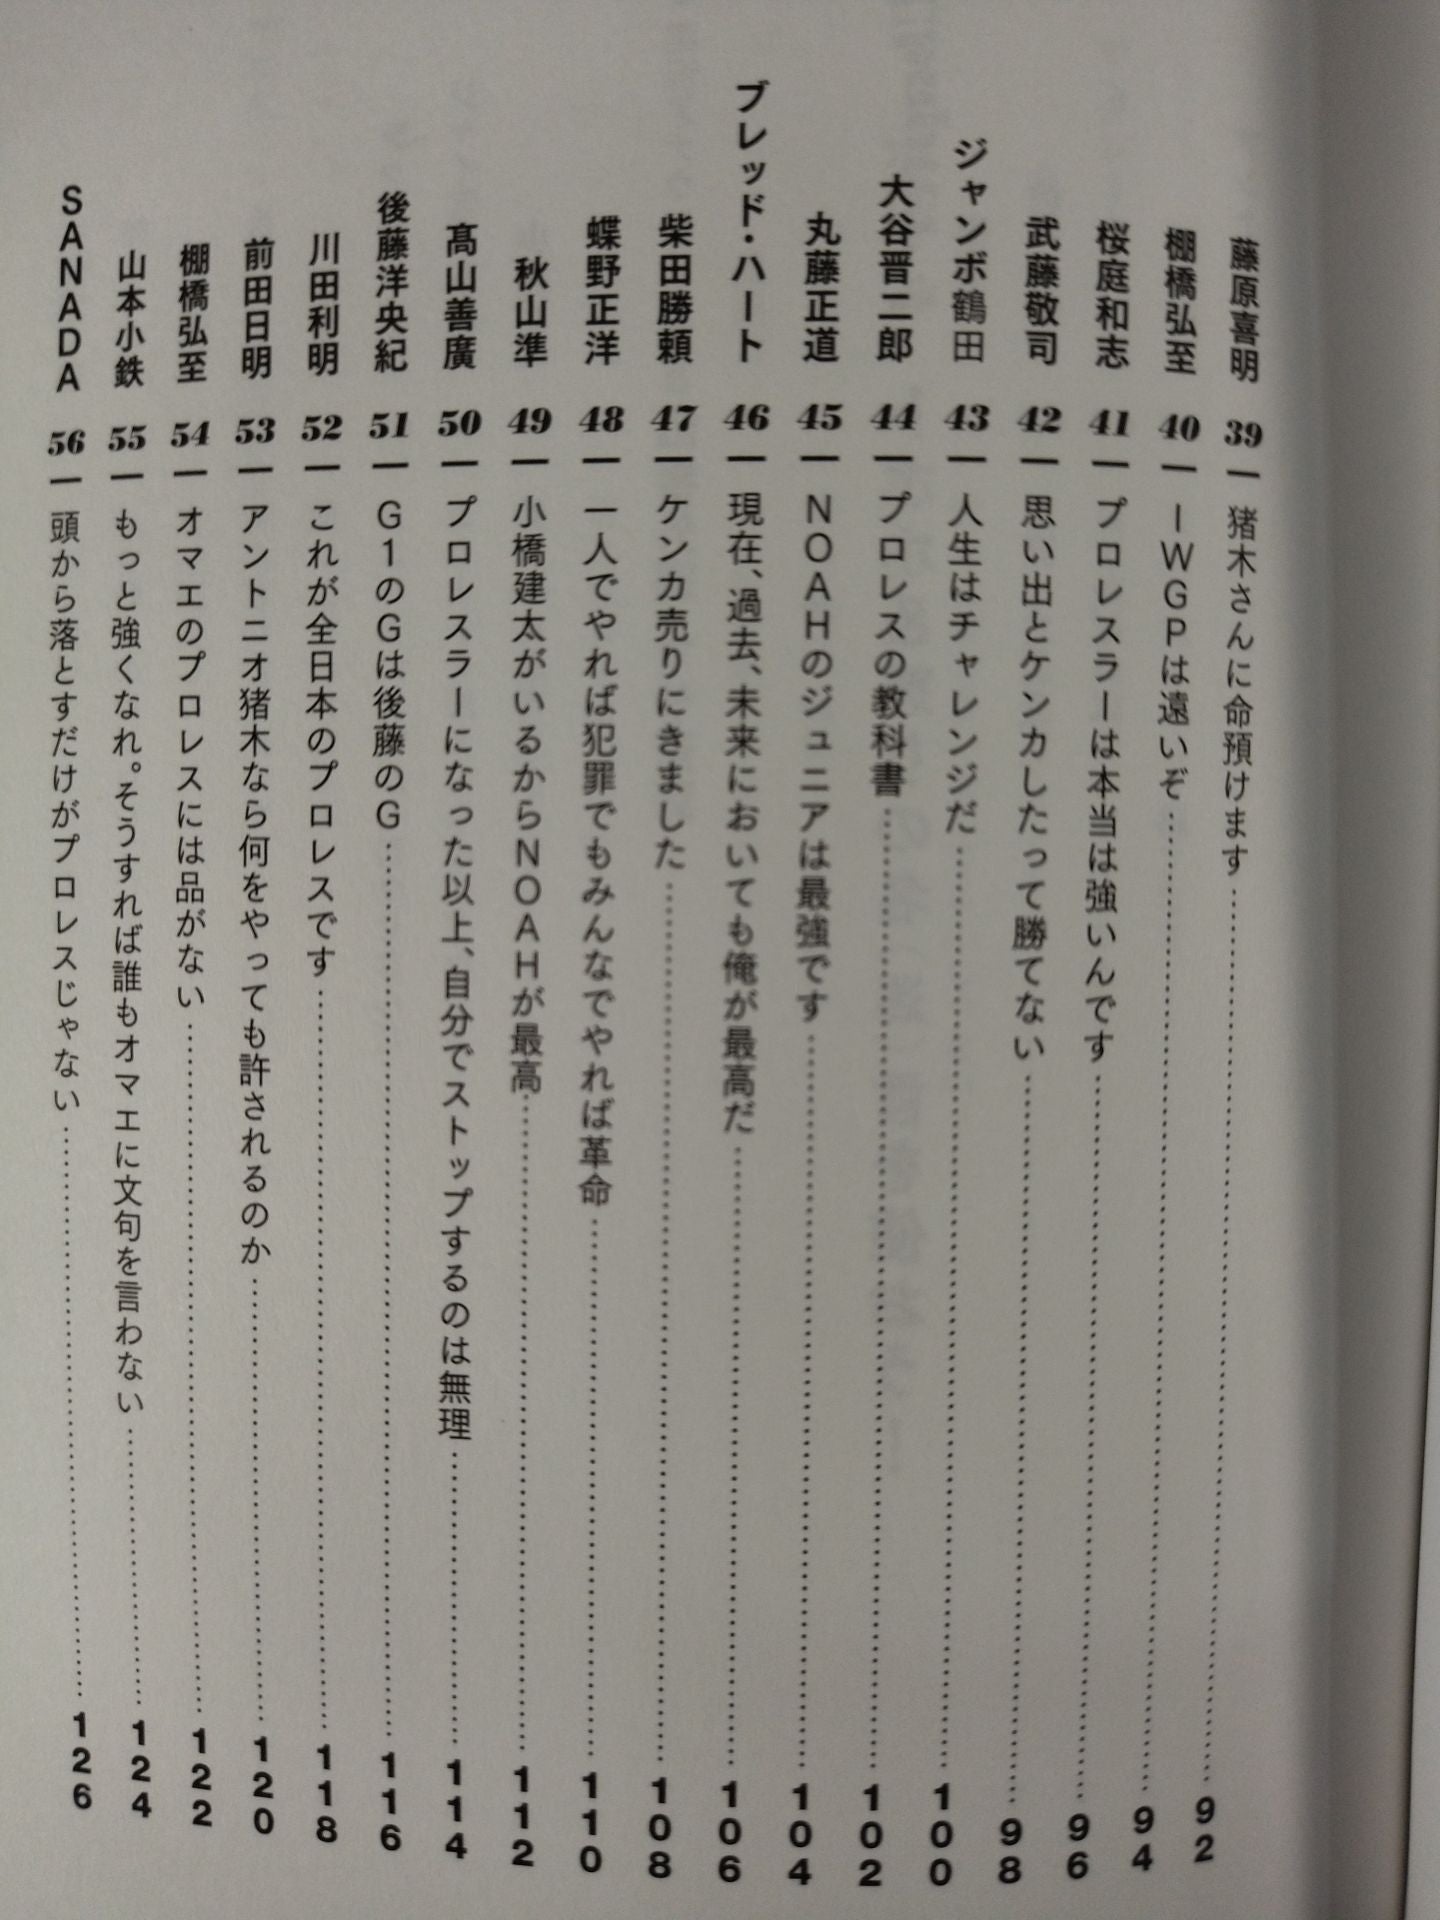 藤原喜明 39 ー 猪木さんに命預けます 92
棚橋弘至 40 ー IWGPは遠いぞ 94
桜庭和志 41 ー プロレスラーは本当は強いんです 96
武藤敬司 42 ー 思い出とケンカしたって勝てない 98
ジャンボ鶴田 43 ー 人生はチャレンジだ 100
大谷晋二郎 44 ー プロレスの教科書 102
丸藤正道 45 ー NOAHのジュニアは最強です 104
ブレッド・ハート 46 ー 現在、過去、未来においても俺が最高だ 106
柴田勝頼 47 ー ケンカ売りにきました 108
蝶野正洋 48 ー 一人でやれば犯罪でもみんなでやれば革命 110
秋山準 49 ー 小橋建太がいるからNOAHが最高 112
髙山善廣 50 ー プロレスラーになった以上、自分でストップするのは無理 114
後藤洋央紀 51 ー G1のGは後藤のG 116
川田利明 52 ー これが全日本のプロレスです 118
前田日明 53 ー アントニオ猪木なら何をやっても許されるのか 120
棚橋弘至 54 ー オマエのプロレスには品がない 122
山本小鉄 55 ー もっと強くなれ。そうすれば誰もオマエに文句を言わない 124
SANADA 56 ー 頭から落とすだけがプロレスじゃない 126